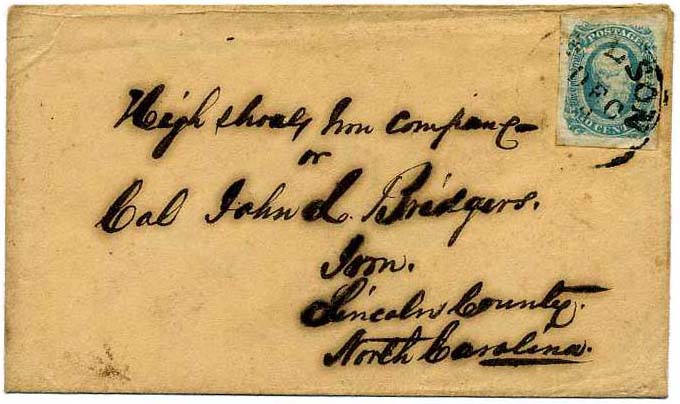 POSTAGE
LSON
DEC
CENT
High shoals Iron company
or
Col John L. Bridgers.
Iron.
Lincoln County.
North Carolina.